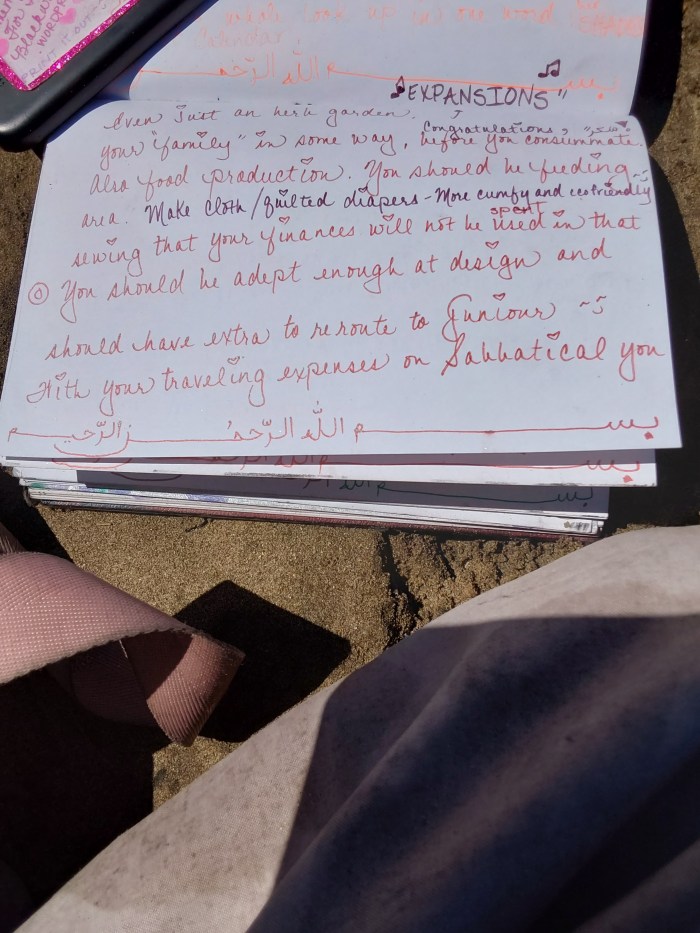 look up in one word
Calendar.
بسم الله الرحمن
"EXPANSIONS"
Even just an herb garden.
Congratulations,
your "family" in some way, before you consummate.
Also food production. You should be feeding
area. Make cloth/quilted diapers - More cumfy and ecofriendly
spent
sewing that your finances will not be used in that
You should be adept enough at design and
should have extra to reroute to Juniour
With your traveling expenses on Sabbatical you
بسم الله الرحمن الرحيم